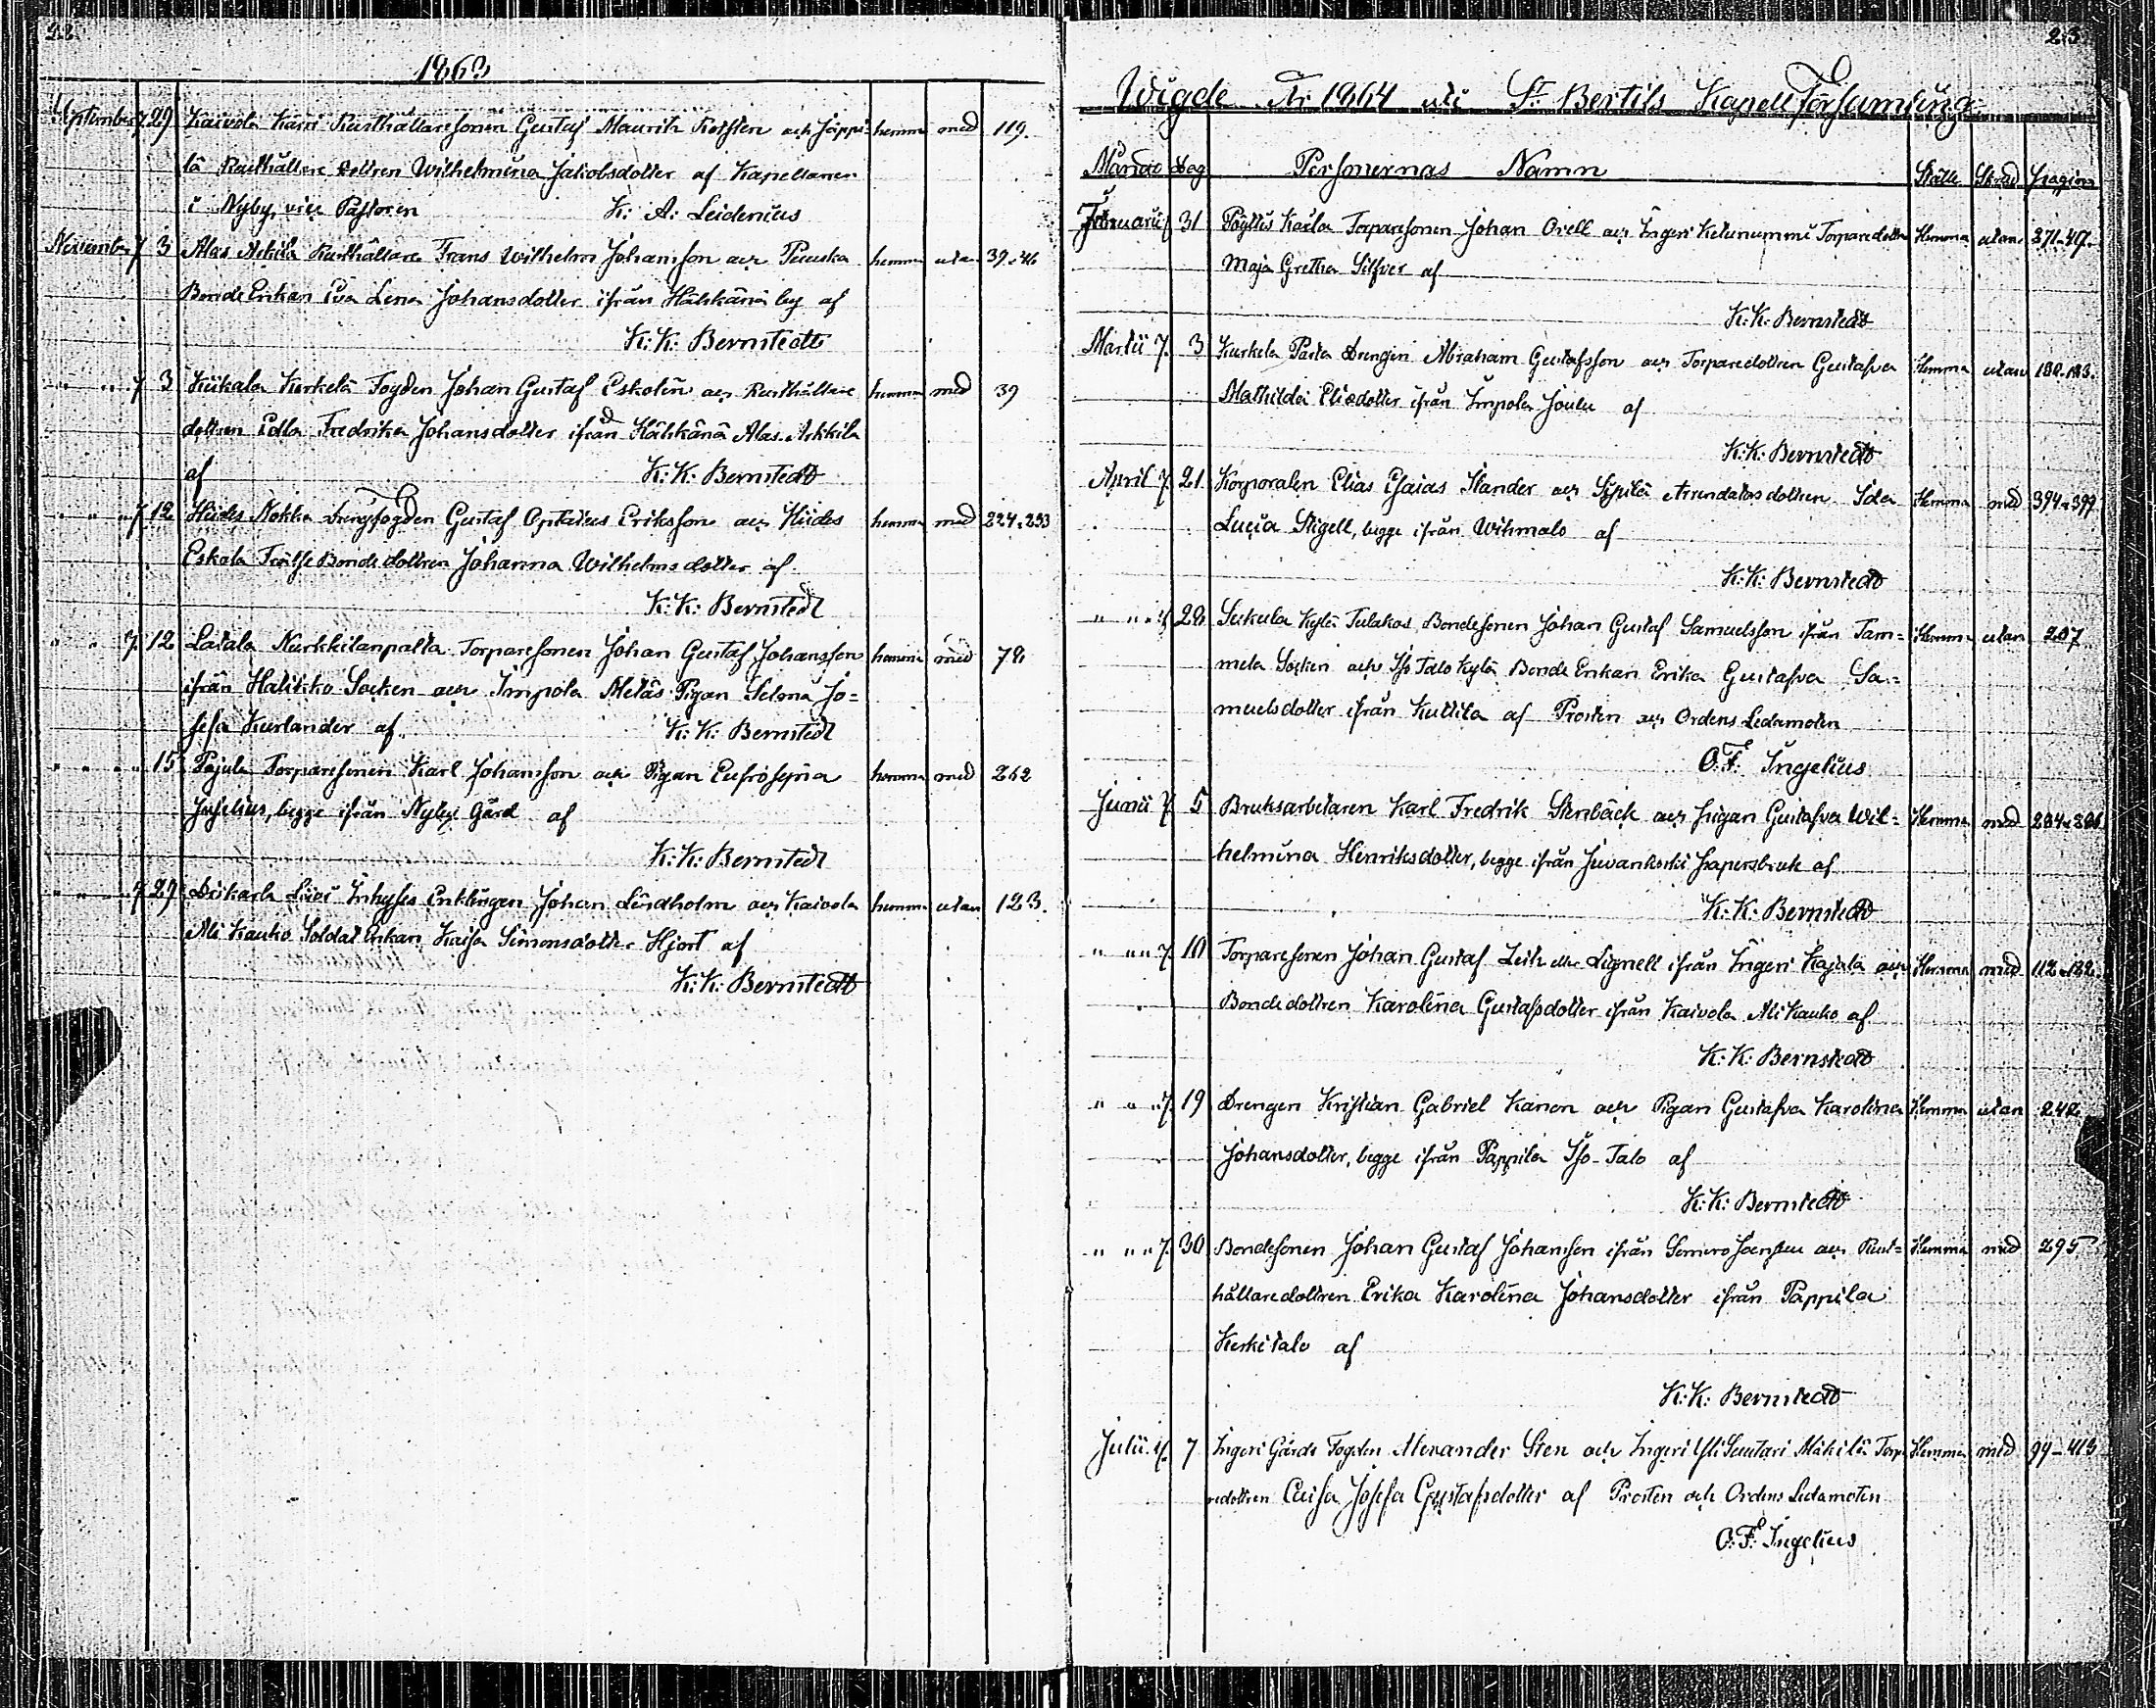 22.
1863
September 7 29 Kaivola Karri Rusthållaresonen Gustaf Mauritz Korsten och Jäppi- hemma med 119.
lä Rusthållare dottren Wilhelmina Jakobsdotter af Kapellanen
i Nyby, vice Pastoren K: A: Leidenius
November 7 3 Alas Arkila Rusthållare Frans Wilhelm Johansson och Puuska hemma utan 39-46
Bonde Enkan Eva Lena Johansdotter ifrån Hähkänä by af
K: K: Bernstedt
" " 7 3 Kiikala Kurkelä Fogden Johan Gustaf Eskolin och Rusthållare hemma med 39
dottren Edla Fredrika Johansdotter ifrån Hähkänä Alas-Arkkila
af K: K: Bernstedt
" " 7 12 Hiides Nokka Drengfogden Gustaf Optatus Eriksson och Hiides hemma med 224-253
Eskola Frälse Bonde dottren Johanna Wilhelmsdotter af
K: K: Bernstedt
" " 7 12 Latala Nurkkilanpalta Torparesonen Johan Gustaf Johansson hemma med 78
ifrån Halikko Socken och Impola Metäs Pigan Selma Jo=
sefa Kurlander af K: K: Bernstedt
" " " 15 Pajula Torparesonen Karl Johansson och Pigan Eufrosyna hemma med 262
Juselius, begge ifrån Nyby Gård af
K: K: Bernstedt
" " 7 29 Inhyses Enklingen Johan Lindholm och Kaivola hemma utan 123.
Ali Kauko Soldat Enkan Kaisa Simonsdotter Hjort af
K: K: Bernstedt
23
Wigde År 1864 uti St Bertils Kapell Församling
Månad Dag Personernas Namn Ställe Skrud Pagina
Februarii 31 Pöytiö Karla Torparesonen Johan Orell och Ingeri Ketunummi Torparedottren Hemma utan 371-417.
Maja Gretha Silfver af
K: K: Bernstedt
Martii 7. 3 Kurkela Parta Drengen Abraham Gustafsson och Torparedottren Gustafva Hemma utan 182-183.
Mathilda Eliedotter ifrån Impola Joulu af
K: K: Bernstedt
April 7. 21 Korporalen Elias Esaias Stander och Sipilä Arrendatorsdottren Ida Hemma med 394-399
Lucia Stigell, begge ifrån Wihmalo af
K: K: Bernstedt
" " 7 28 Kylä Tulakas Bondesonen Johan Gustaf Samuelsson ifrån Tam= Hemma utan 207
mela Socken och Iso Talo Kylä Bonde Enkan Erika Gustafva Sa=
muelsdotter ifrån Kuttila af Prosten och Ordens Ledamoten
O. F. Ingelius
Junii 7. 5 Bruksarbetaren Karl Fredrik Stenbäck och Pigan Gustafva Wil= Hemma med 284-286
helmina Henriksdotter, begge ifrån Juvankoski Papersbruk af
K: K: Bernstedt
" " " 7. 10 Torparesonen Johan Gustaf Leik eller Lignell ifrån Ingeri Kajala och Hemma med 112-132.
Bondedottren Karolina Gustafsdotter ifrån Kaivola Ali Kauko af
K: K: Bernstedt
" " 7. 19 Drengen Kristian Gabriel Kanon och Pigan Gustafva Karolina Hemma utan 242
Johansdotter, begge ifrån Pappila Iso-Talo af
K: K: Bernstedt
" " " 7. 30 Bondesonen Johan Gustaf Johansson ifrån Somero Joensuu och Rust= Hemma med 295
hållaredottren Erika Karolina Johansdotter ifrån Pappila
Kerkitalo af
K: K: Bernstedt
Julii 7. 7 Ingeri Gårds Fogden Alexander Sten och Ingeri Yli Suutari Mäkilä Torpa Hemma med 94-413
redottren Caisa Josefa Gustafsdotter af Prosten och Ordens Ledamoten
O. F. Ingelius